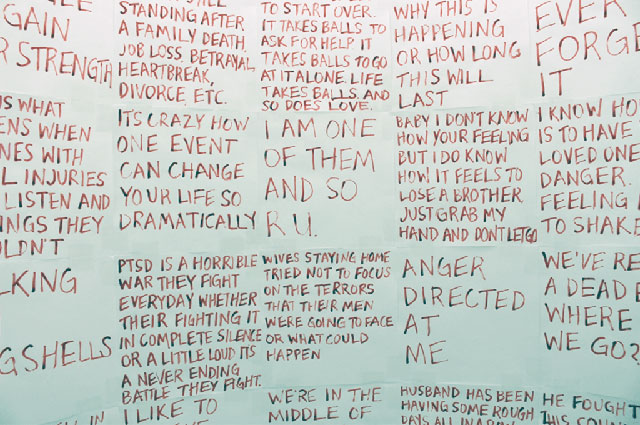 GAIN
R STRENGTH
STANDING AFTER
A FAMILY DEATH,
JOB LOSS, BETRAYAL,
HEARTBREAK,
DIVORCE, ETC.
TO START OVER.
IT TAKES BALLS TO
ASK FOR HELP. IT
TAKES BALLS TO GO
AT IT ALONE. LIFE
TAKES BALLS. AND
SO DOES LOVE.
WHY THIS IS
HAPPENING
OR HOW LONG
THIS WILL
LAST
EVER
FORGE
IT
IS WHAT
ENS WHEN
NES WITH
L INJURIES
LISTEN AND
INGS THEY
ULDN'T
ITS CRAZY HOW
ONE EVENT
CAN CHANGE
YOUR LIFE SO
DRAMATICALLY
I AM ONE
OF THEM
AND SO
R U.
BABY I DONT KNOW
HOW YOUR FEELING
BUT I DO KNOW
HOW IT FEELS TO
LOSE A BROTHER.
JUST GRAB MY
HAND AND DONT LET GO
I KNOW HO
IS TO HAVE
LOVED ONE
DANGER.
FEELING
TO SHAKE
LKING
GSHELLS
PTSD IS A HORRIBLE
WAR THEY FIGHT
EVERYDAY WHETHER
THEIR FIGHTING IT
IN COMPLETE SILENCE
OR A LITTLE LOUD ITS
A NEVER ENDING
BATTLE THEY FIGHT.
WIVES STAYING HOME
TRIED NOT TO FOCUS
ON THE TERRORS
THAT THEIR MEN
WERE GOING TO FACE
OR WHAT COULD
HAPPEN
ANGER
DIRECTED
AT
ME
WE'VE RE
A DEAD E
WHERE
WE GO?
I LIKE TO
WE'RE IN THE
MIDDLE OF
HUSBAND HAS BEEN
HAVING SOME ROUGH
DAYS ALL IN A ROW
HE FOUGHT
THIS COUN